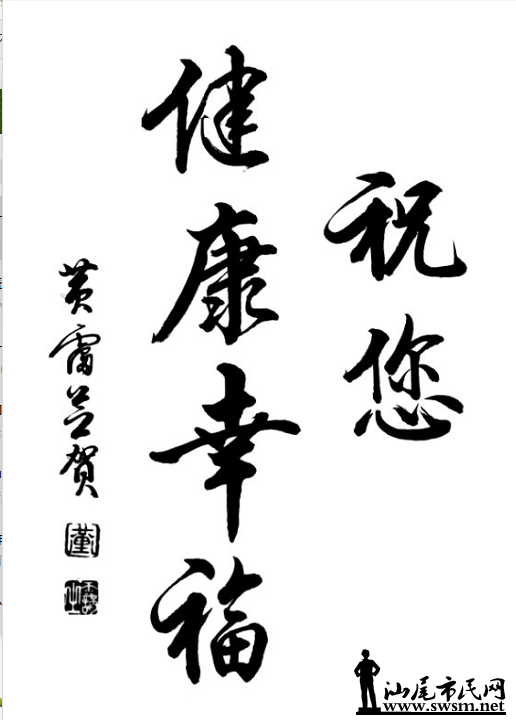 祝您
健康幸福
黄雷並贺
汕尾市民网
www.swsm.net